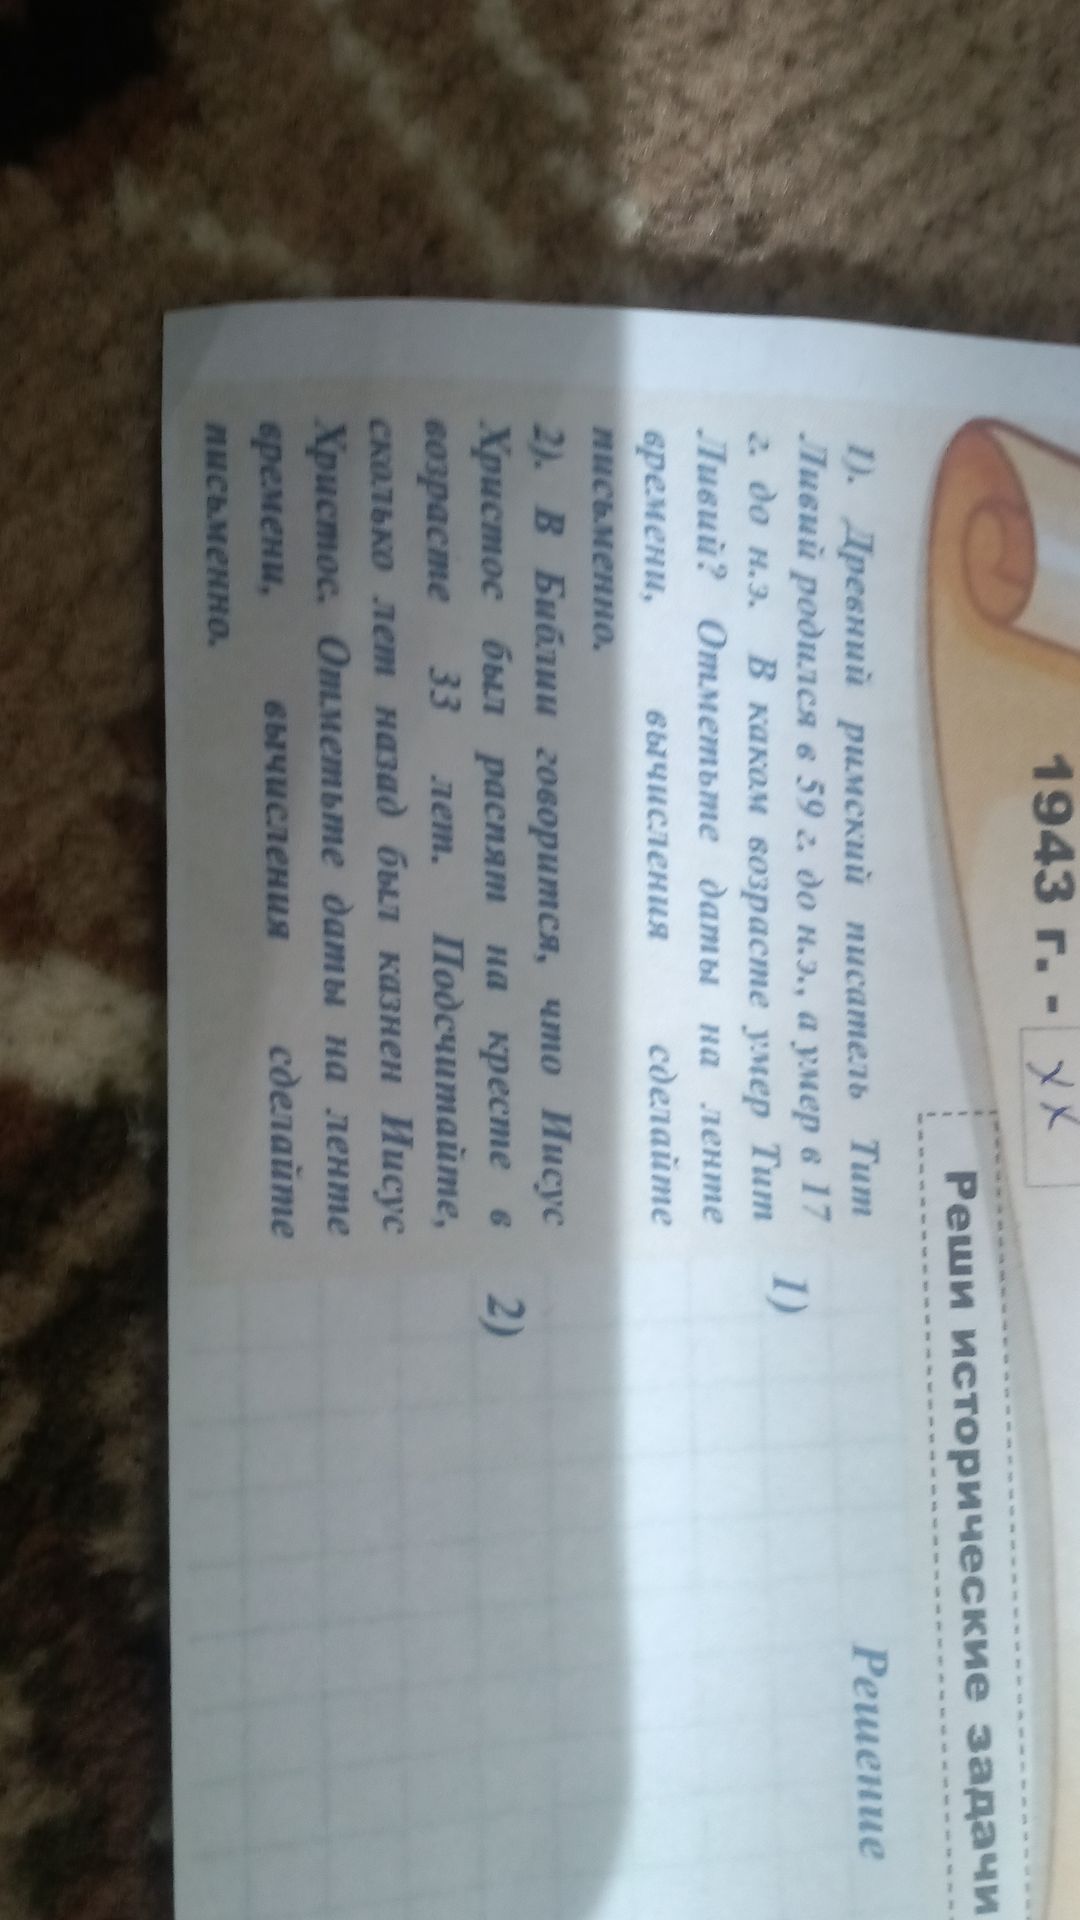 1943 г. - XX
Реши исторические задачи
Решение
1). Древний римский писатель Тит
Ливий родился в 59 г. до н.э., а умер в 17
г. до н.э. В каком возрасте умер Тит
Ливий? Отметьте даты на ленте
времени, вычисления сделайте
письменно.
2). В Библии говорится, что Иисус
Христос был распят на кресте в
возрасте 33 лет. Подсчитайте,
сколько лет назад был казнен Иисус
Христос. Отметьте даты на ленте
времени, вычисления сделайте
письменно.
1)
2)